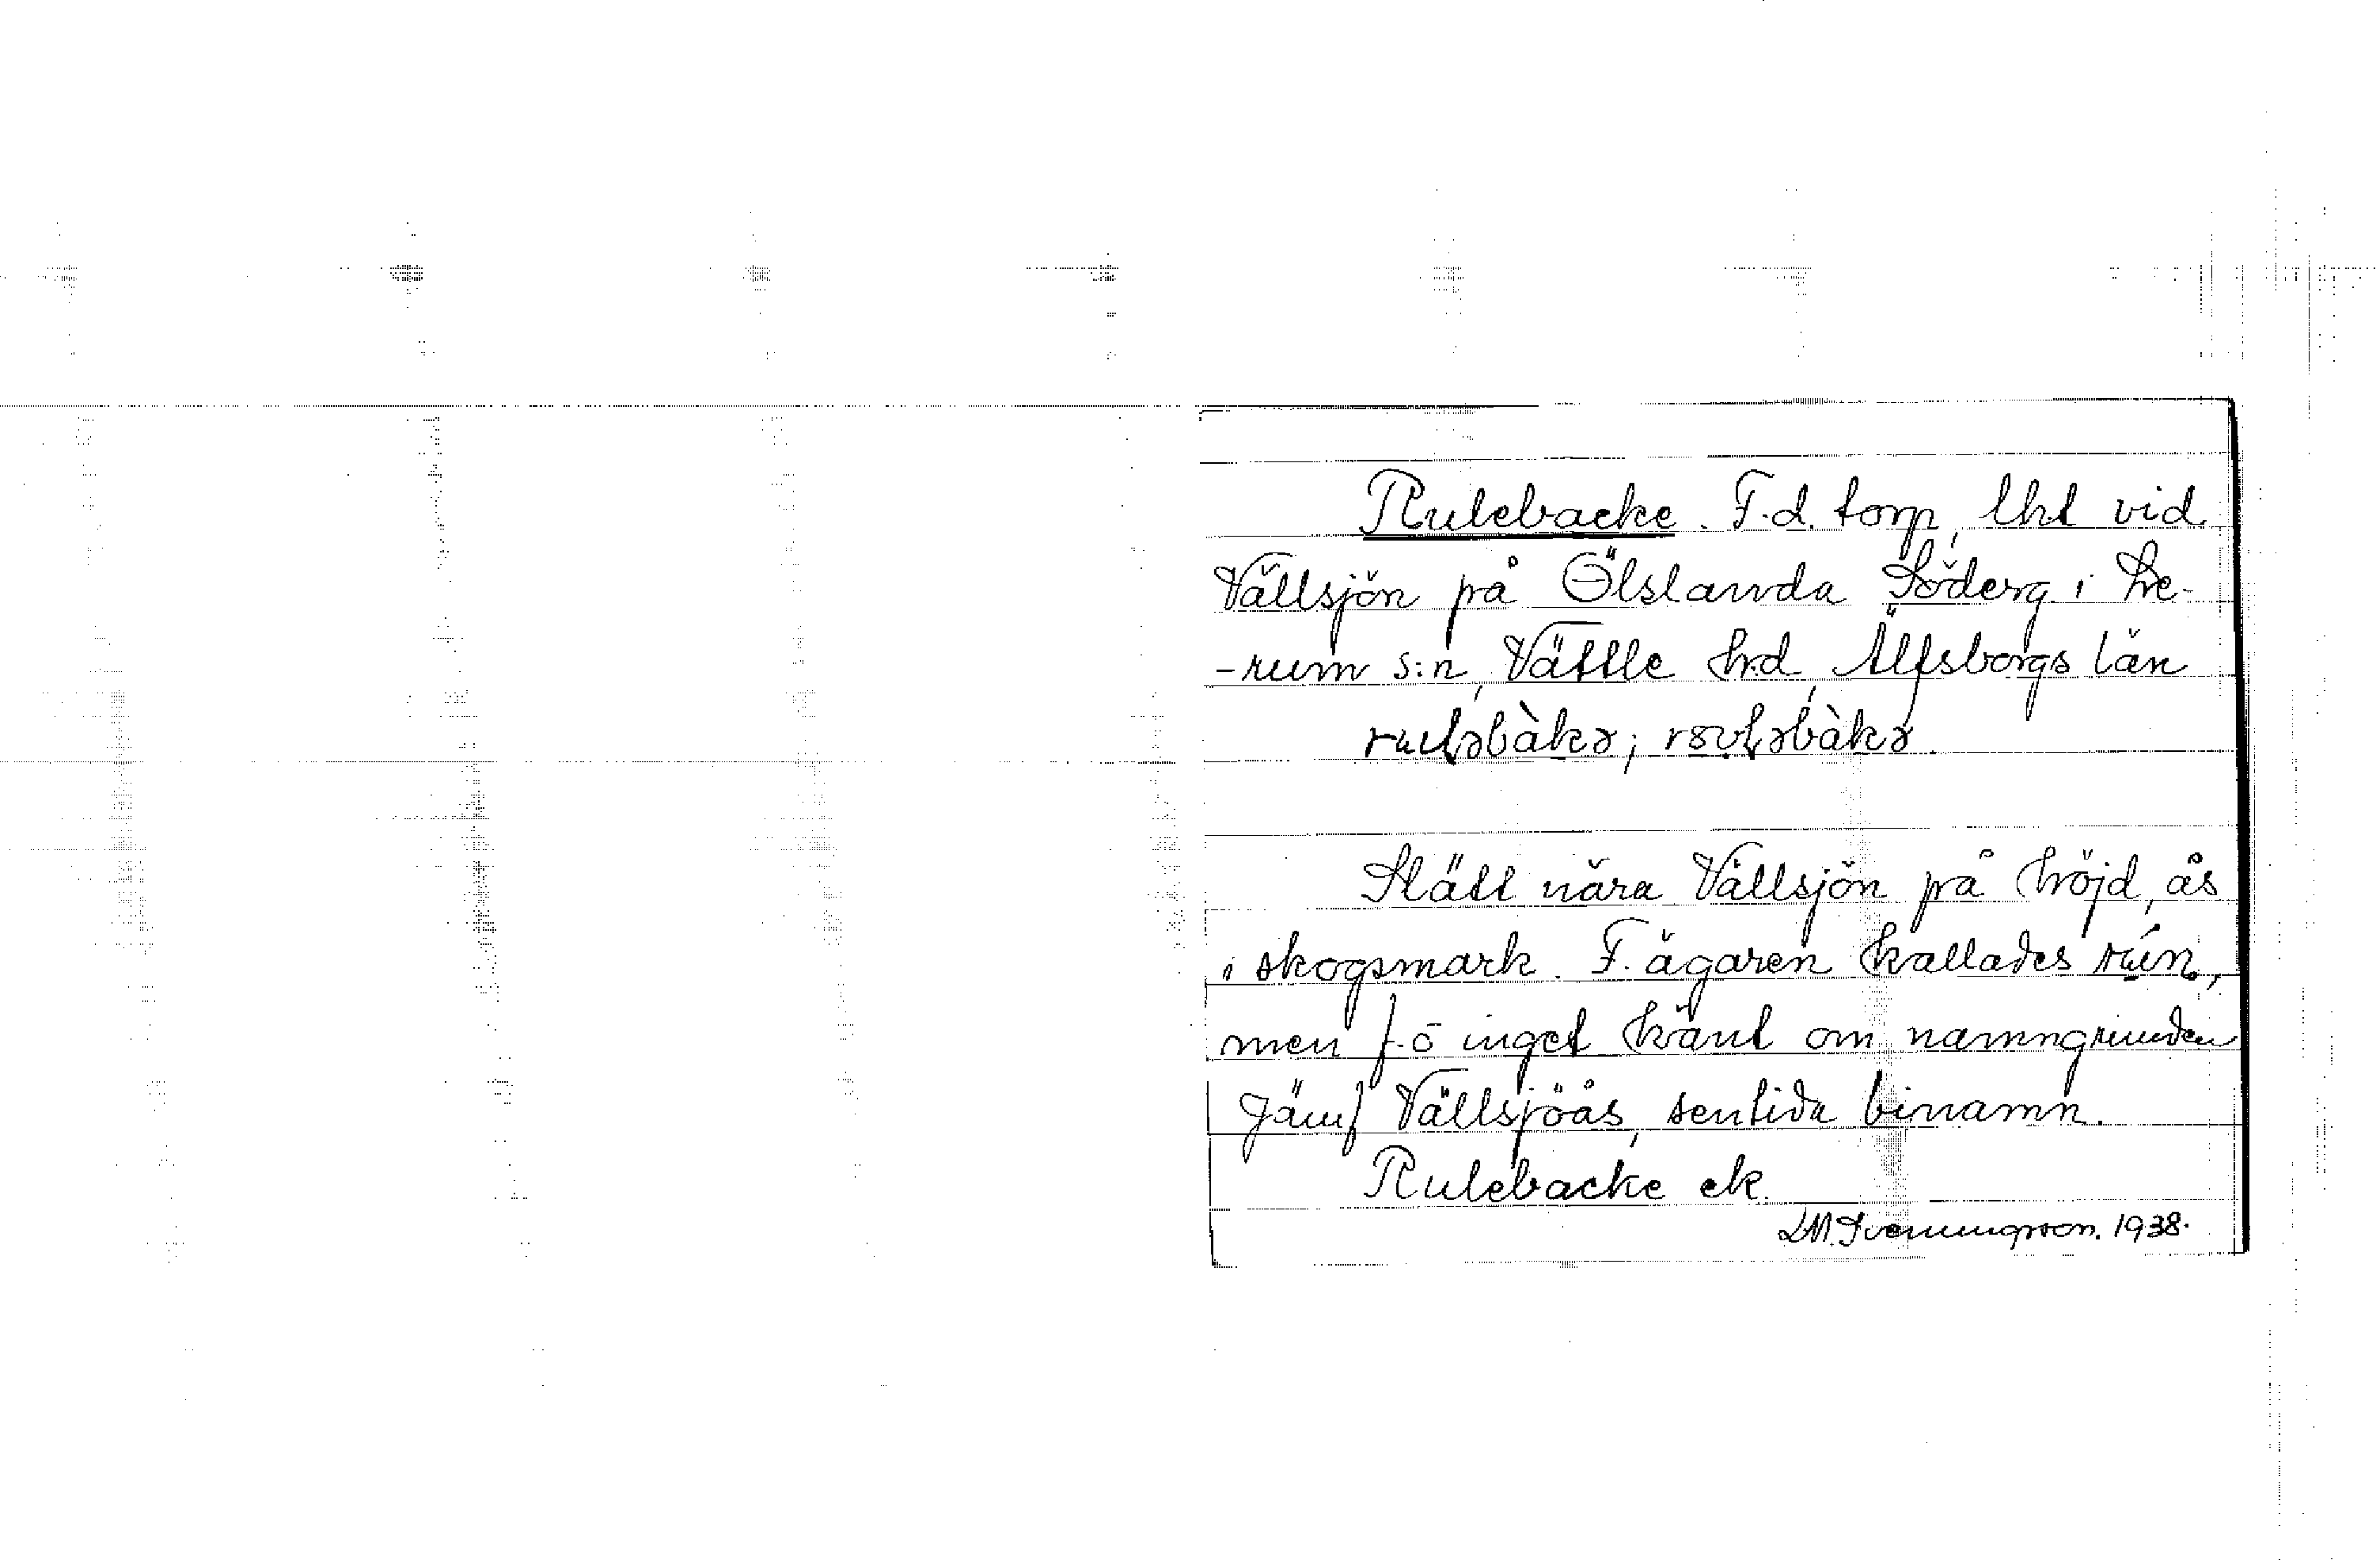 Rulebacke. F.d. torp, lht vid
Vällsjön på Ölslanda Söderg. i Le-
-rum s:n, Vättle hd, Älfsborgs län
Slätt nära Vällsjön på höjd, ås
i skogsmark. F. ägaren kallades
men f.ö inget känt om namngrunden
Jämf Vällsjöås, sentida binamn.
Rulebacke ek.
LM. Svenungsson. 1938.